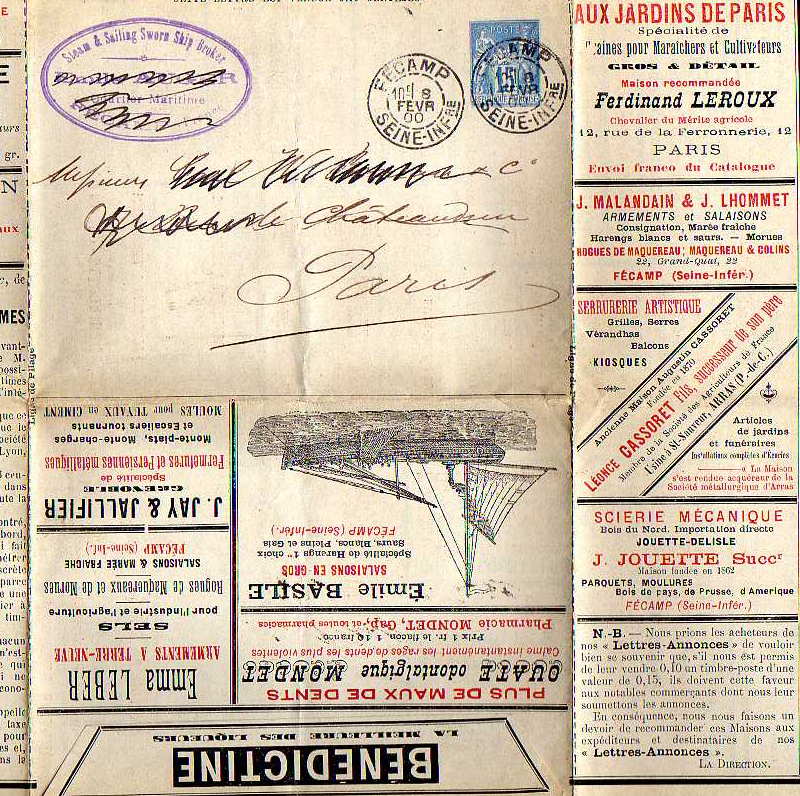 Steam & Sailing Sworn Ship Broker
Quartier Maritime
POSTES
FÉCAMP
8
FEVR
00
SEINE-INFRE
FÉCAMP
8
FEVR
00
SEINE-INFRE
Messieurs
& Cie
de Châteaudun
Paris
AUX JARDINS DE PARIS
Spécialité de
Graines pour Maraîchers et Cultivateurs
GROS & DÉTAIL
Maison recommandée
Ferdinand LEROUX
Chevalier du Mérite agricole
12, rue de la Ferronnerie, 12
PARIS
Envoi franco du Catalogue
J. MALANDAIN & J. LHOMMET
ARMEMENTS et SALAISONS
Consignation, Marée fraîche
Harengs blancs et saurs. — Morues
ROGUES DE MAQUEREAU; MAQUEREAU & COLINS
22, Grand-Quai, 22
FÉCAMP (Seine-Infér.)
SERRURERIE ARTISTIQUE
Grilles, Serres
Vérandhas
Balcons
KIOSQUES
Ancienne Maison Augustin CASSORET
Fondée en 1870
LÉONCE CASSORET Fils, successeur de son père
Membre de la Société des Agriculteurs de France
Usine à St-Sauveur, ARRAS (P.-de-C.)
Articles
de jardins
et funéraires
Installations complètes d'Ecuries
La Maison
s'est rendue acquéreur de la
Société métallurgique d'Arras
SCIERIE MÉCANIQUE
Bois du Nord. Importation directe
JOUETTE-DELISLE
J. JOUETTE Succr
Maison fondée en 1862
PARQUETS, MOULURES
Bois de pays, de Prusse, d'Amerique
FÉCAMP (Seine-Infér.)
N.-B. — Nous prions les acheteurs de
nos « Lettres-Annonces » de vouloir
bien se souvenir que, s'il nous est permis
de leur vendre 0,10 un timbre-poste d'une
valeur de 0,15, ils doivent cette faveur
aux notables commerçants dont nous leur
soumettons les annonces.
En conséquence, nous nous faisons un
devoir de recommander ces Maisons aux
expéditeurs et destinataires de nos
« Lettres-Annonces ».
LA DIRECTION.
Ligne de Pliage
BÉNÉDICTINE
LA MEILLEURE DES LIQUEURS
PLUS DE MAUX DE DENTS
OUATE odontalgique MONDET
Calme instantanément les rages de dents les plus violentes
Prix 1 fr. le flacon, 1 10 franco
Pharmacie MONDET, Gap, et toutes pharmacies
Émile BASILE
SALAISONS EN GROS
Spécialité de Harengs 1er choix
Saurs, Blancs, Pleins et Gais
FÉCAMP (Seine-Infér.)
Emma LEBER
ARMEMENTS A TERRE-NEUVE
SELS
pour l'industrie et l'agriculture
Rogues de Maquereaux et de Morues
SALAISONS & MARÉE FRAICHE
FÉCAMP (Seine-Inf.)
J. JAY & JALLIFIER
GRENOBLE
Spécialité de
Fermetures et Persiennes métalliques
Monte-plats, Monte-charges
et Escaliers tournants
MOULES pour TUYAUX en CIMENT